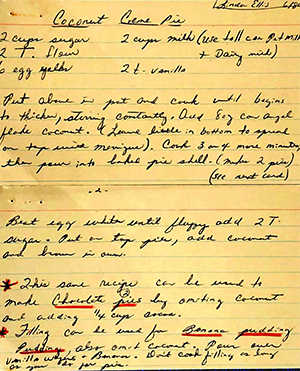 Linda Ellis
Coconut Creme Pie
2 cups sugar 2 cups milk (use 1 can Pet milk
2 T. flour + Dairy milk)
6 egg yolks 2 t. vanilla
Put above in pot and cook until begins
to thicken, stirring constantly. Add 8oz can angel
flake coconut. (Leave little in bottom to spread
on top with meringue). Cook 3 or 4 more minutes,
then pour into baked pie shell. (makes 2 pies)
(See next card)
Beat egg whites until fluffy add 2 T.
sugar. Put on top pies, add coconut
and brown in oven.
* This same recipe can be used to
make Chocolate pies by omitting coconut
and adding 1/4 cup cocoa.
* Filling can be used for Banana pudding
Pudding, also omit coconut. Pour over
vanilla wafers + Bananas. Don't cook filling as long
as you do for pie.